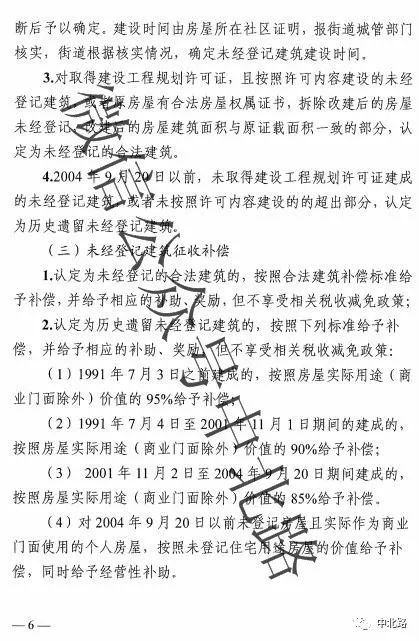 断后予以确定。建设时间由房屋所在社区证明，报街道城管部门
核实，街道根据核实情况，确定未经登记建筑建设时间。
3.对取得建设工程规划许可证，且按照许可内容建设的未经
登记建筑，或者原房屋有合法房屋权属证书，拆除改建后的房屋
未经登记，改建后的房屋建筑面积与原证载面积一致的部分，认
定为未经登记的合法建筑。
4.2004年9月20日以前，未取得建设工程规划许可证建成
的未经登记建筑，或者未按照许可内容建设的的超出部分，认定
为历史遗留未经登记建筑。
（三）未经登记建筑征收补偿
1.认定为未经登记的合法建筑的，按照合法建筑补偿标准给
予补偿，并给予相应的补助、奖励，但不享受相关税收减免政策；
2.认定为历史遗留未经登记建筑的，按照下列标准给予补
偿，并给予相应的补助、奖励，但不享受相关税收减免政策：
（1）1991年7月3日之前建成的，按照房屋实际用途（商
业门面除外）价值的95%给予补偿；
（2）1991年7月4日至2001年11月1日期间的建成的，
按照房屋实际用途（商业门面除外）价值的90%给予补偿；
（3） 2001年11月2日至2004年9月20日期间的建成的，
按照房屋实际用途（商业门面除外）价值的85%给予补偿。
（4）对2004年9月20日以前未登记房屋且实际作为商业
门面使用的个人房屋，按照未登记住宅用途房屋的价值给予补
偿，同时给予经营性补助。
— 6 —
微信公众号中北路
中北路